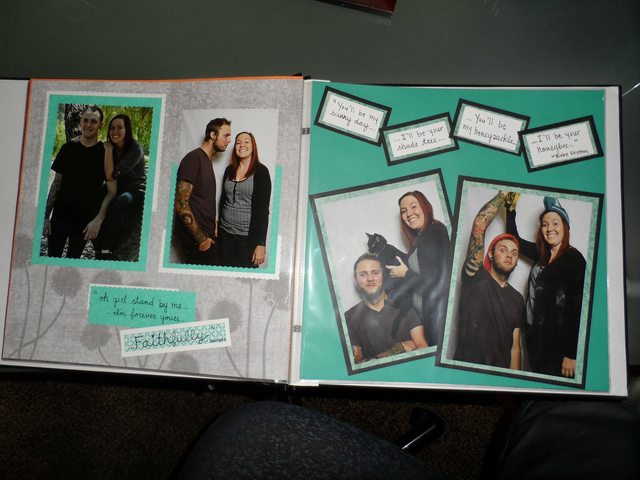 "oh girl stand by me...
- Im forever yours...
Faithfully.
"You'll be my
sunny day...
...I'll be your
shade tree...
... You'll be
my honeysuckle...
...I'll be your
honeybee..."
- Blake Shelton